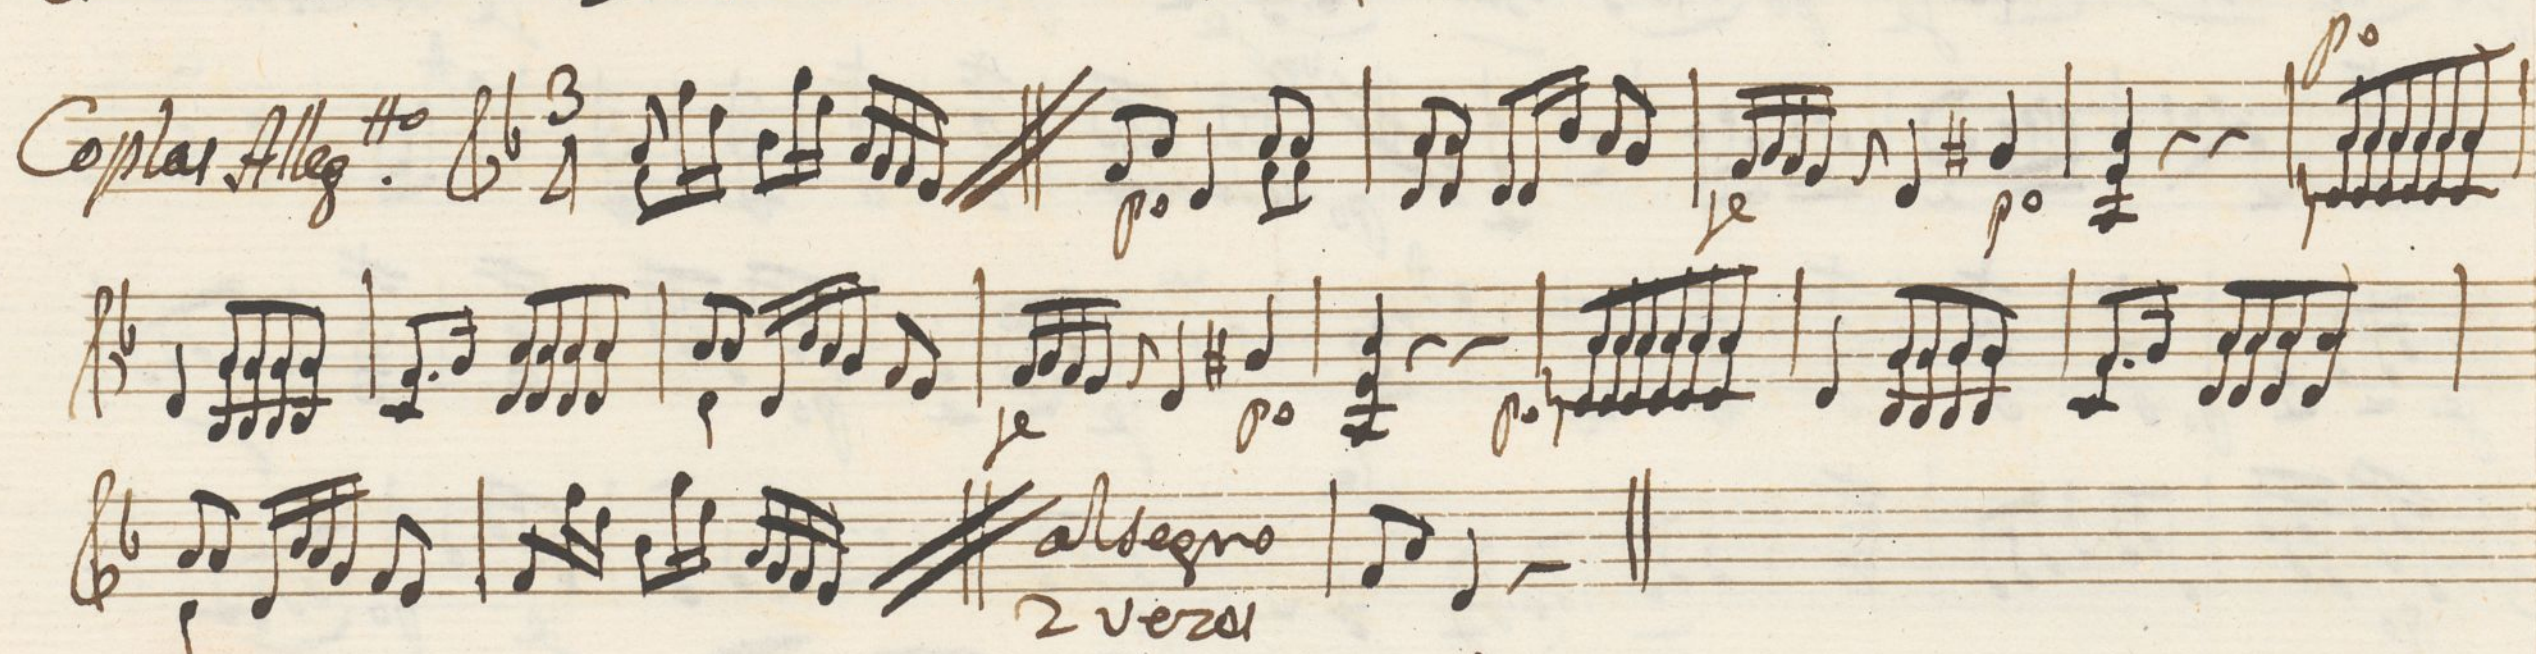 Coplas Alleg.tto 3 4 po fe po po
fe po po
al segno
2 vezes